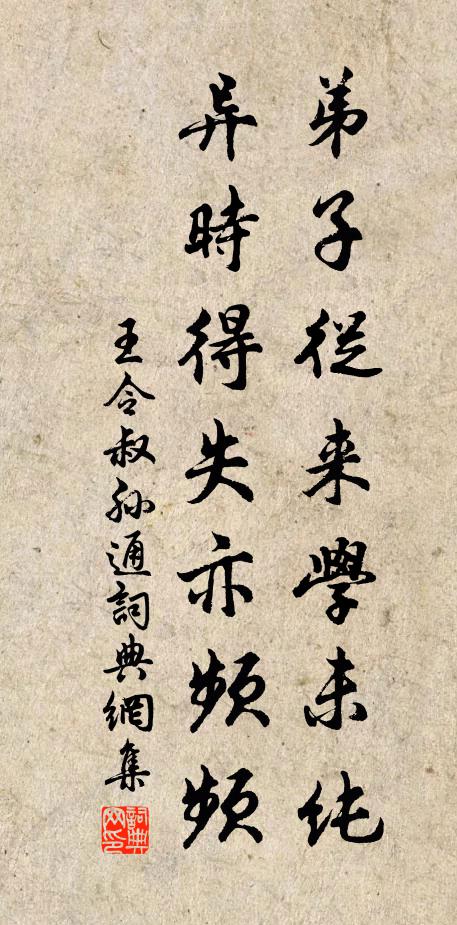 弟子從来學未纯
异時得失亦頻頻
王令叔孫通詞典網集
詞典网印